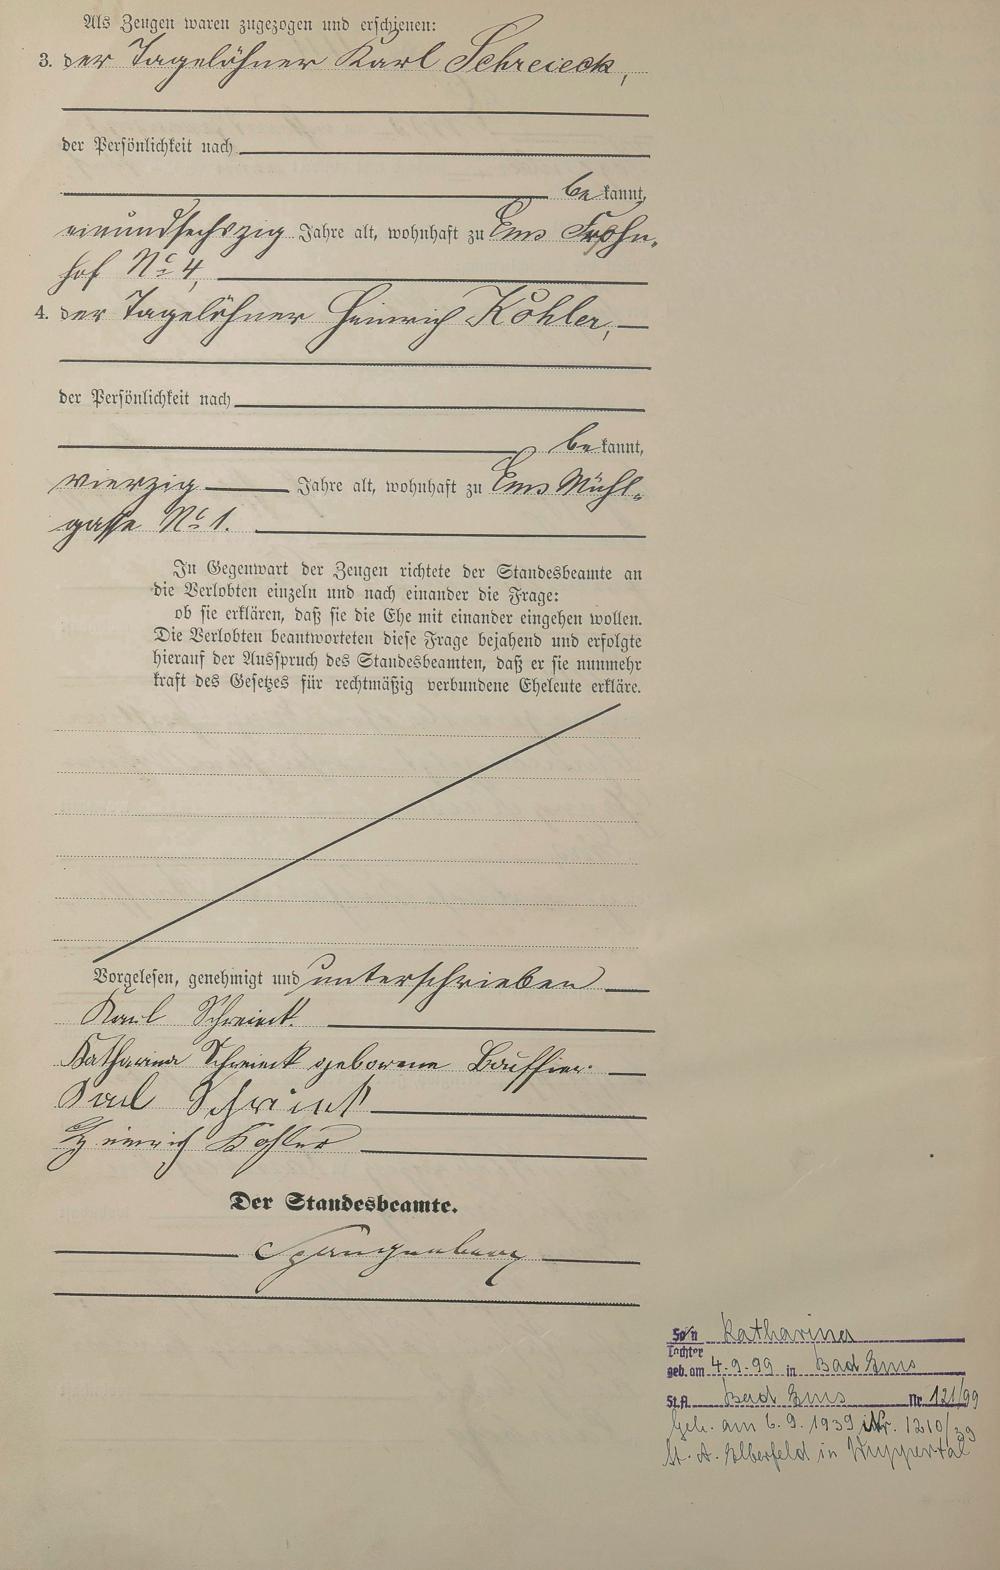 Als Zeugen waren zugezogen und erschienen:
3. der Tagelöhner Karl Schreieck,
der Persönlichkeit nach
bekannt,
einundsechszig Jahre alt, wohnhaft zu Ems Frohn-
hof No 4,
4. der Tagelöhner Heinrich Köhler,
der Persönlichkeit nach
bekannt,
vierzig Jahre alt, wohnhaft zu Ems Mühl-
gasse No 1.
In Gegenwart der Zeugen richtete der Standesbeamte an
die Verlobten einzeln und nach einander die Frage:
ob sie erklären, daß sie die Ehe mit einander eingehen wollen.
Die Verlobten beantworteten diese Frage bejahend und erfolgte
hierauf der Ausspruch des Standesbeamten, daß er sie nunmehr
kraft des Gesetzes für rechtmäßig verbundene Eheleute erkläre.
Vorgelesen, genehmigt und unterschrieben
Karl Schreieck.
Katharina Schreieck geborene Bauffier.
Karl Schreieck
Heinrich Köhler
Der Standesbeamte.
Spangenberg
Sohn Katharina
Tochter
geb. am 4.9.99 in Bad Ems
St.A. Bad Ems Nr 121/99
Geh. am 6.9.1939 Nr. 1210/39
St. A. Elberfeld in Wuppertal